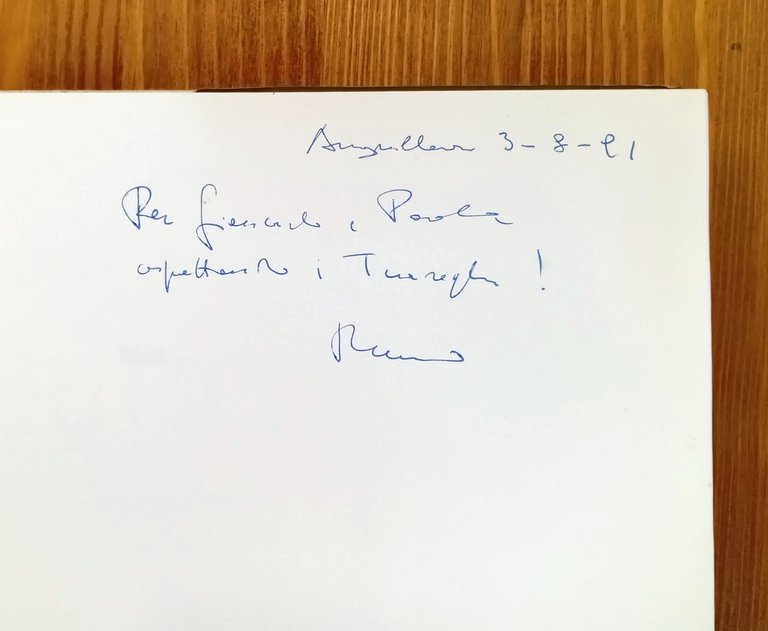 Anguillara 3-8-91
Per Giancarlo e Paola
aspettando i Tuaregh!